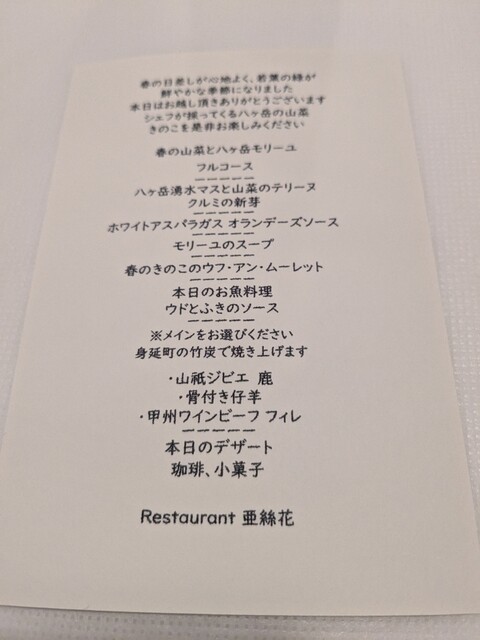 春の日差しが心地よく、若葉の緑が
鮮やかな季節になりました
本日はお越し頂きありがとうございます
シェフが採ってくる八ヶ岳の山菜
きのこを是非お楽しみください
春の山菜と八ヶ岳モリーユ
フルコース
ーーーーー
八ヶ岳湧水マスと山菜のテリーヌ
クルミの新芽
ーーーーー
ホワイトアスパラガス オランデーズソース
ーーーーー
モリーユのスープ
ーーーーー
春のきのこのウフ・アン・ムーレット
ーーーーー
本日のお魚料理
ウドとふきのソース
ーーーーー
※メインをお選びください
身延町の竹炭で焼き上げます
・山祇ジビエ 鹿
・骨付き仔羊
・甲州ワインビーフ フィレ
ーーーーー
本日のデザート
珈琲、小菓子
Restaurant 亜絲花